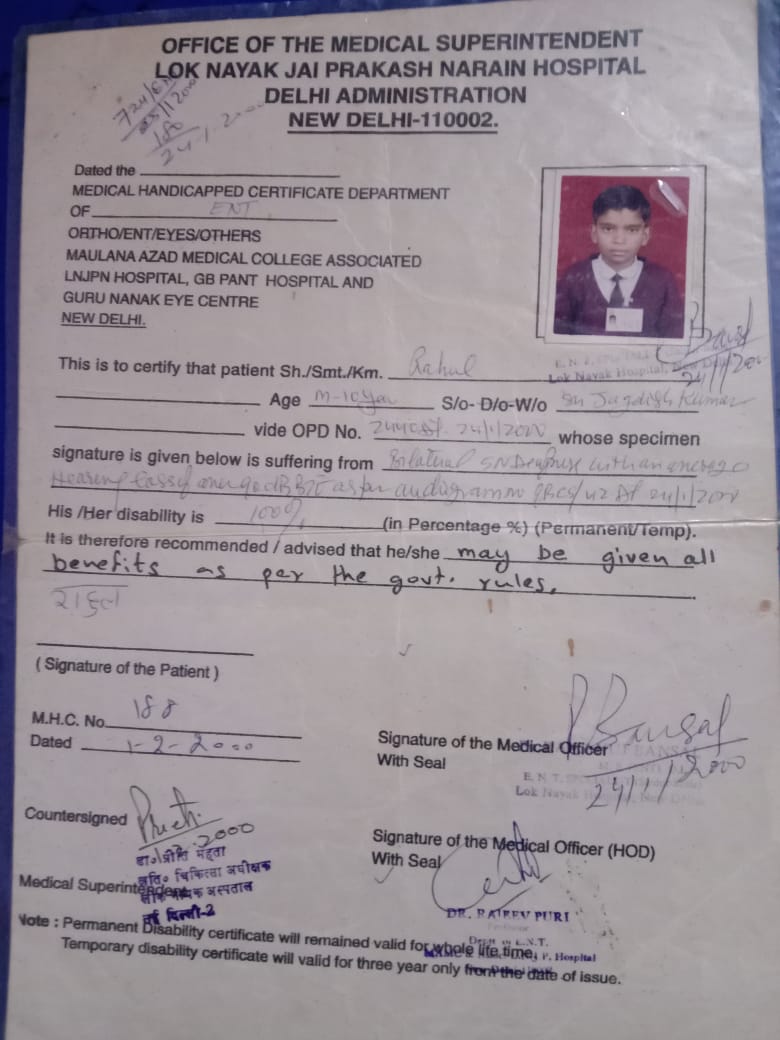 OFFICE OF THE MEDICAL SUPERINTENDENT
LOK NAYAK JAI PRAKASH NARAIN HOSPITAL
DELHI ADMINISTRATION
NEW DELHI-110002.
188
24-1-2000
Dated the
MEDICAL HANDICAPPED CERTIFICATE DEPARTMENT
OF ENT
ORTHO/ENT/EYES/OTHERS
MAULANA AZAD MEDICAL COLLEGE ASSOCIATED
LNJPN HOSPITAL, GB PANT HOSPITAL AND
GURU NANAK EYE CENTRE
NEW DELHI.
Bansal
24/1/2000
Lok Nayak Hospital, New
This is to certify that patient Sh./Smt./Km. Rahul
Age M-10 Year S/o- D/o-W/o Sh Jagdish Kumar
vide OPD No. 24/1/2000 whose specimen
signature is given below is suffering from Bilateral SN with an
Hearing Loss of as per audiogramme 24/1/2000
His /Her disability is 100% (in Percentage %) (Permanent/Temp).
It is therefore recommended / advised that he/she may be given all
benefits as per the govt. rules.
राहुल
( Signature of the Patient )
M.H.C. No. 188
Dated 1-2-2000
Bansal
Signature of the Medical Officer
With Seal
BANSAL
24/1/2000
E. N. T.
Lok Nayak Hospital, New Delhi
Countersigned
2000
डा० प्रीति मेहता
अति० चिकित्सा अधीक्षक
लोक नायक अस्पताल
नई दिल्ली-2
Medical Superintendent
Signature of the Medical Officer (HOD)
With Seal
DR. RAJEEV PURI
Professor
Deptt of E.N.T.
Hospital
Note : Permanent Disability certificate will remained valid for whole life time,
Temporary disability certificate will valid for three year only from the date of issue.